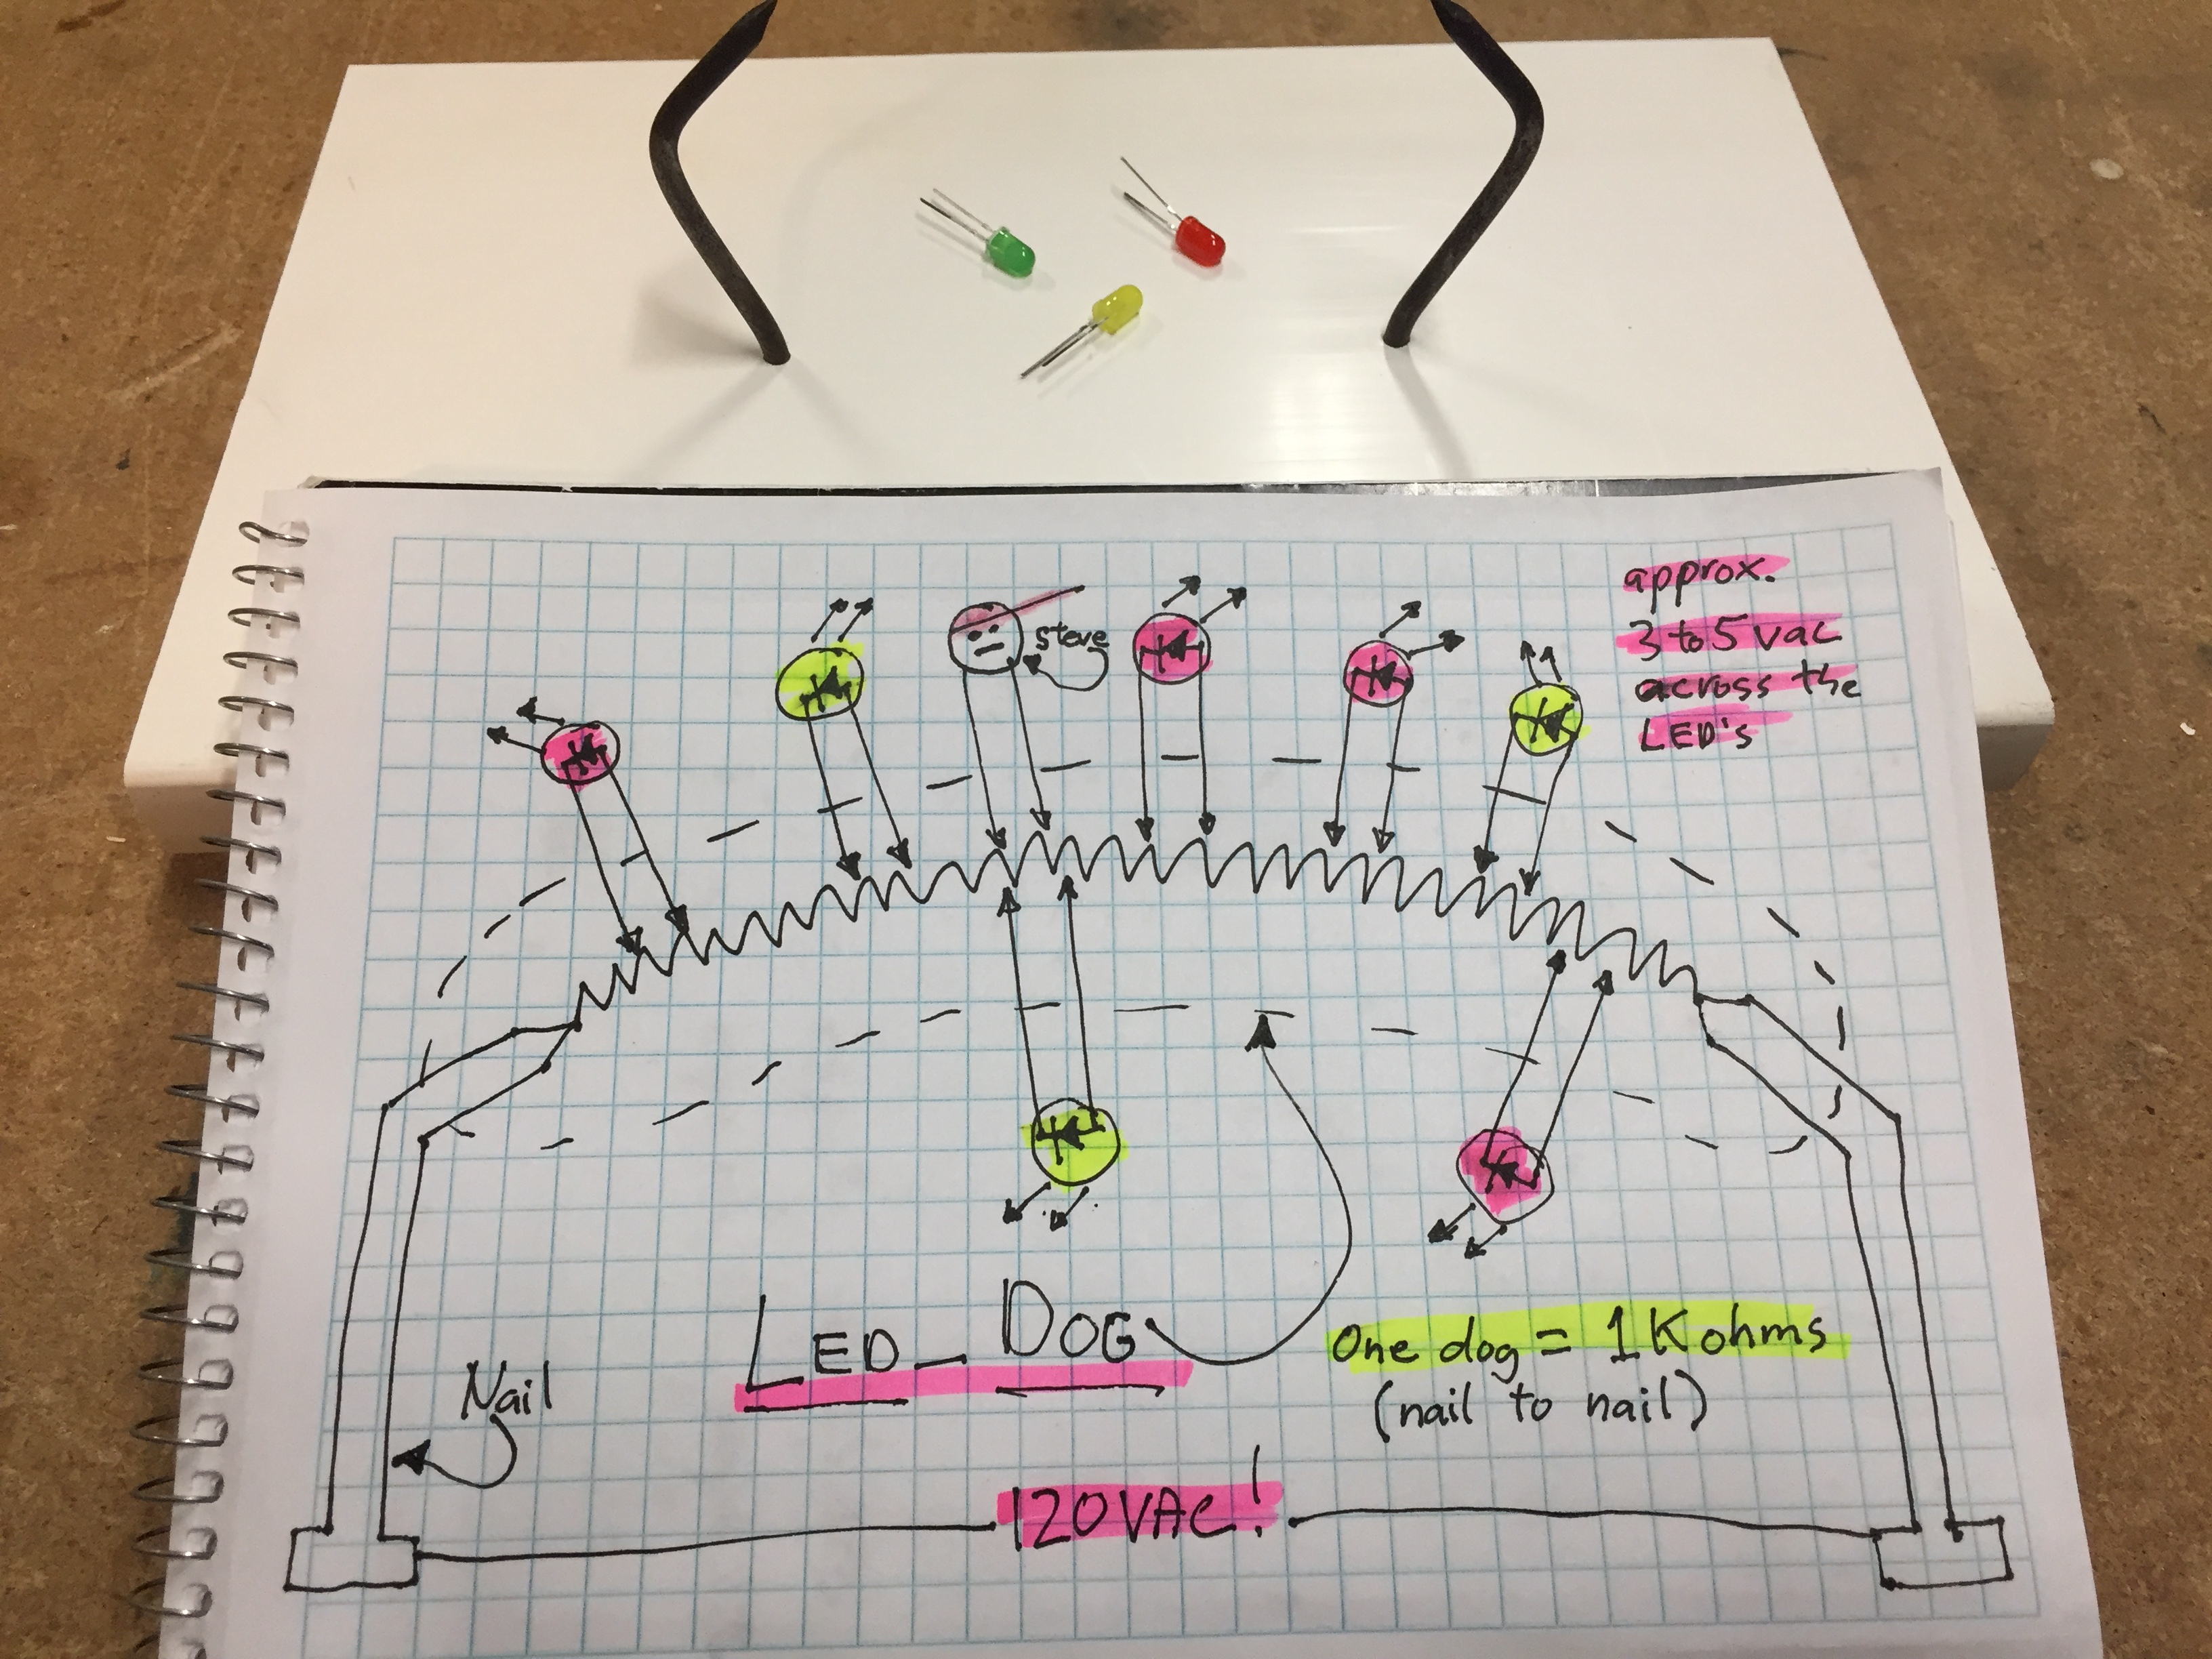 approx.
3 to 5 VAC
across the
LED's
Steve
Nail
LED-DOG
one dog = 1K ohms
(nail to nail)
120VAC!